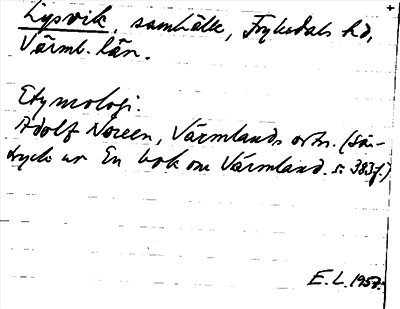 Lysvik, samhälle, Fryksdals hd,
Värml. län.
Etymologi.
Adolf Noreen, Värmlands ortn. (Sär-
tryck ur En bok om Värmland. s. 383f.)
E.L. 1957.